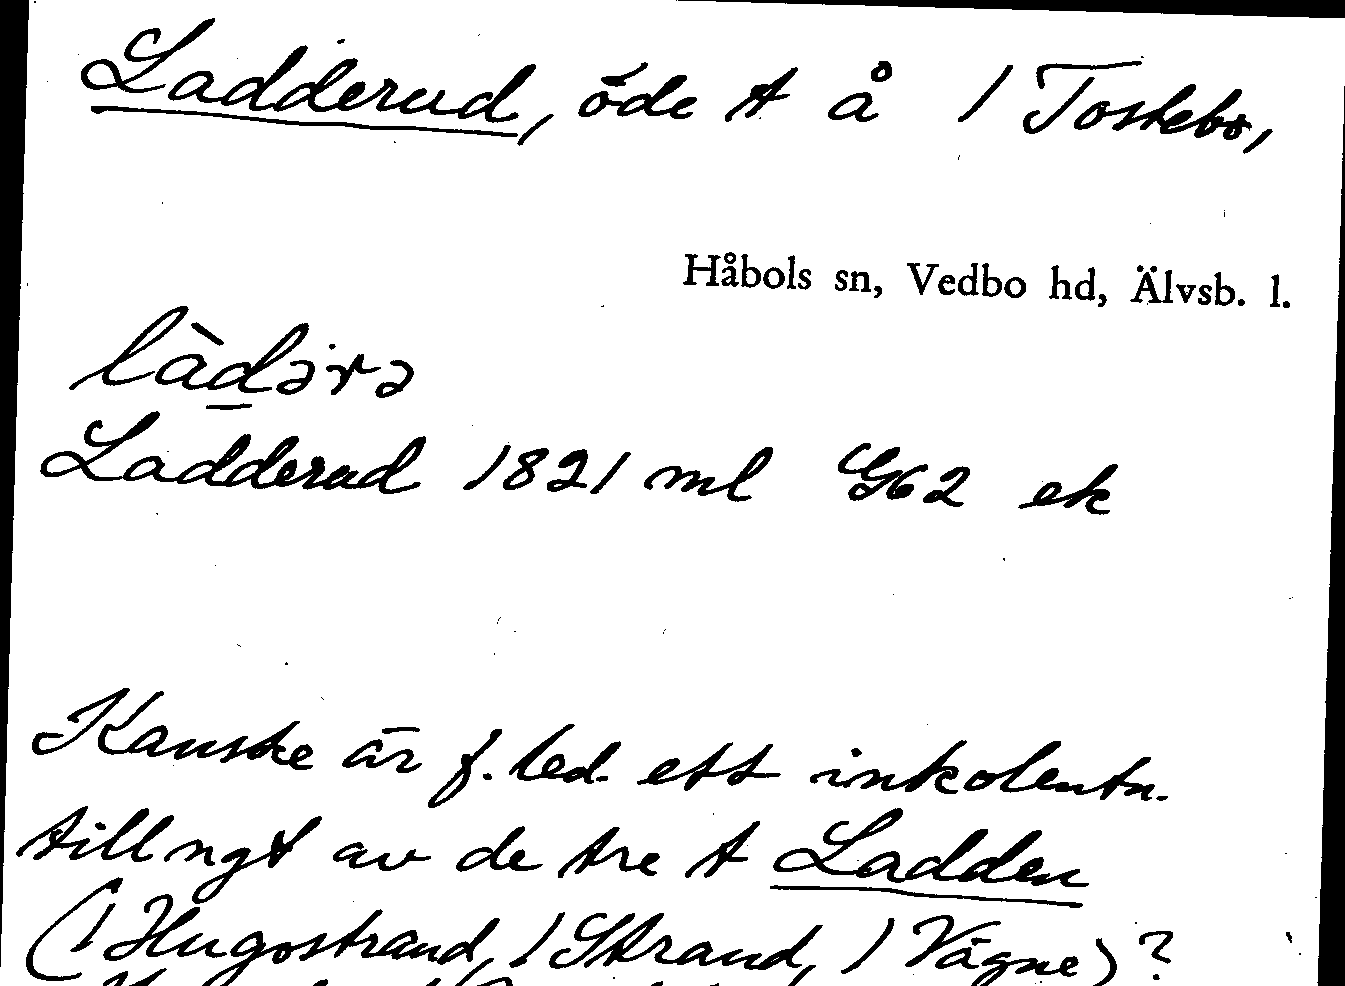 Ladderud, öde t å / Tostebo,
Håbols sn, Vedbo hd, Älvsb. l.
làdərə
Ladderud 1821 ml G62 ek
Kanske är f. led. ett inkolentn.
till ngt av de tre t Ladden
(/ Hugostrand, / Strand, / Vågne)?